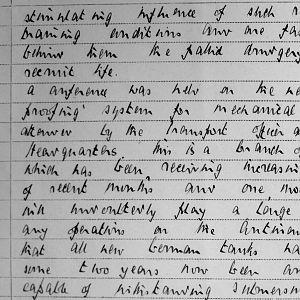 stimulating influence of such
training conditions and are
behind them the pallid drudgery
recruit life.
a conference was held on the
proofing system for mechanical
attended by the Transport Officer
Headquarters this is a branch of
which has been receiving increasing
of recent months and one
will undoubtedly play a large
any operations on the
that all new German tanks
some two years now been
capable of withstanding submersion